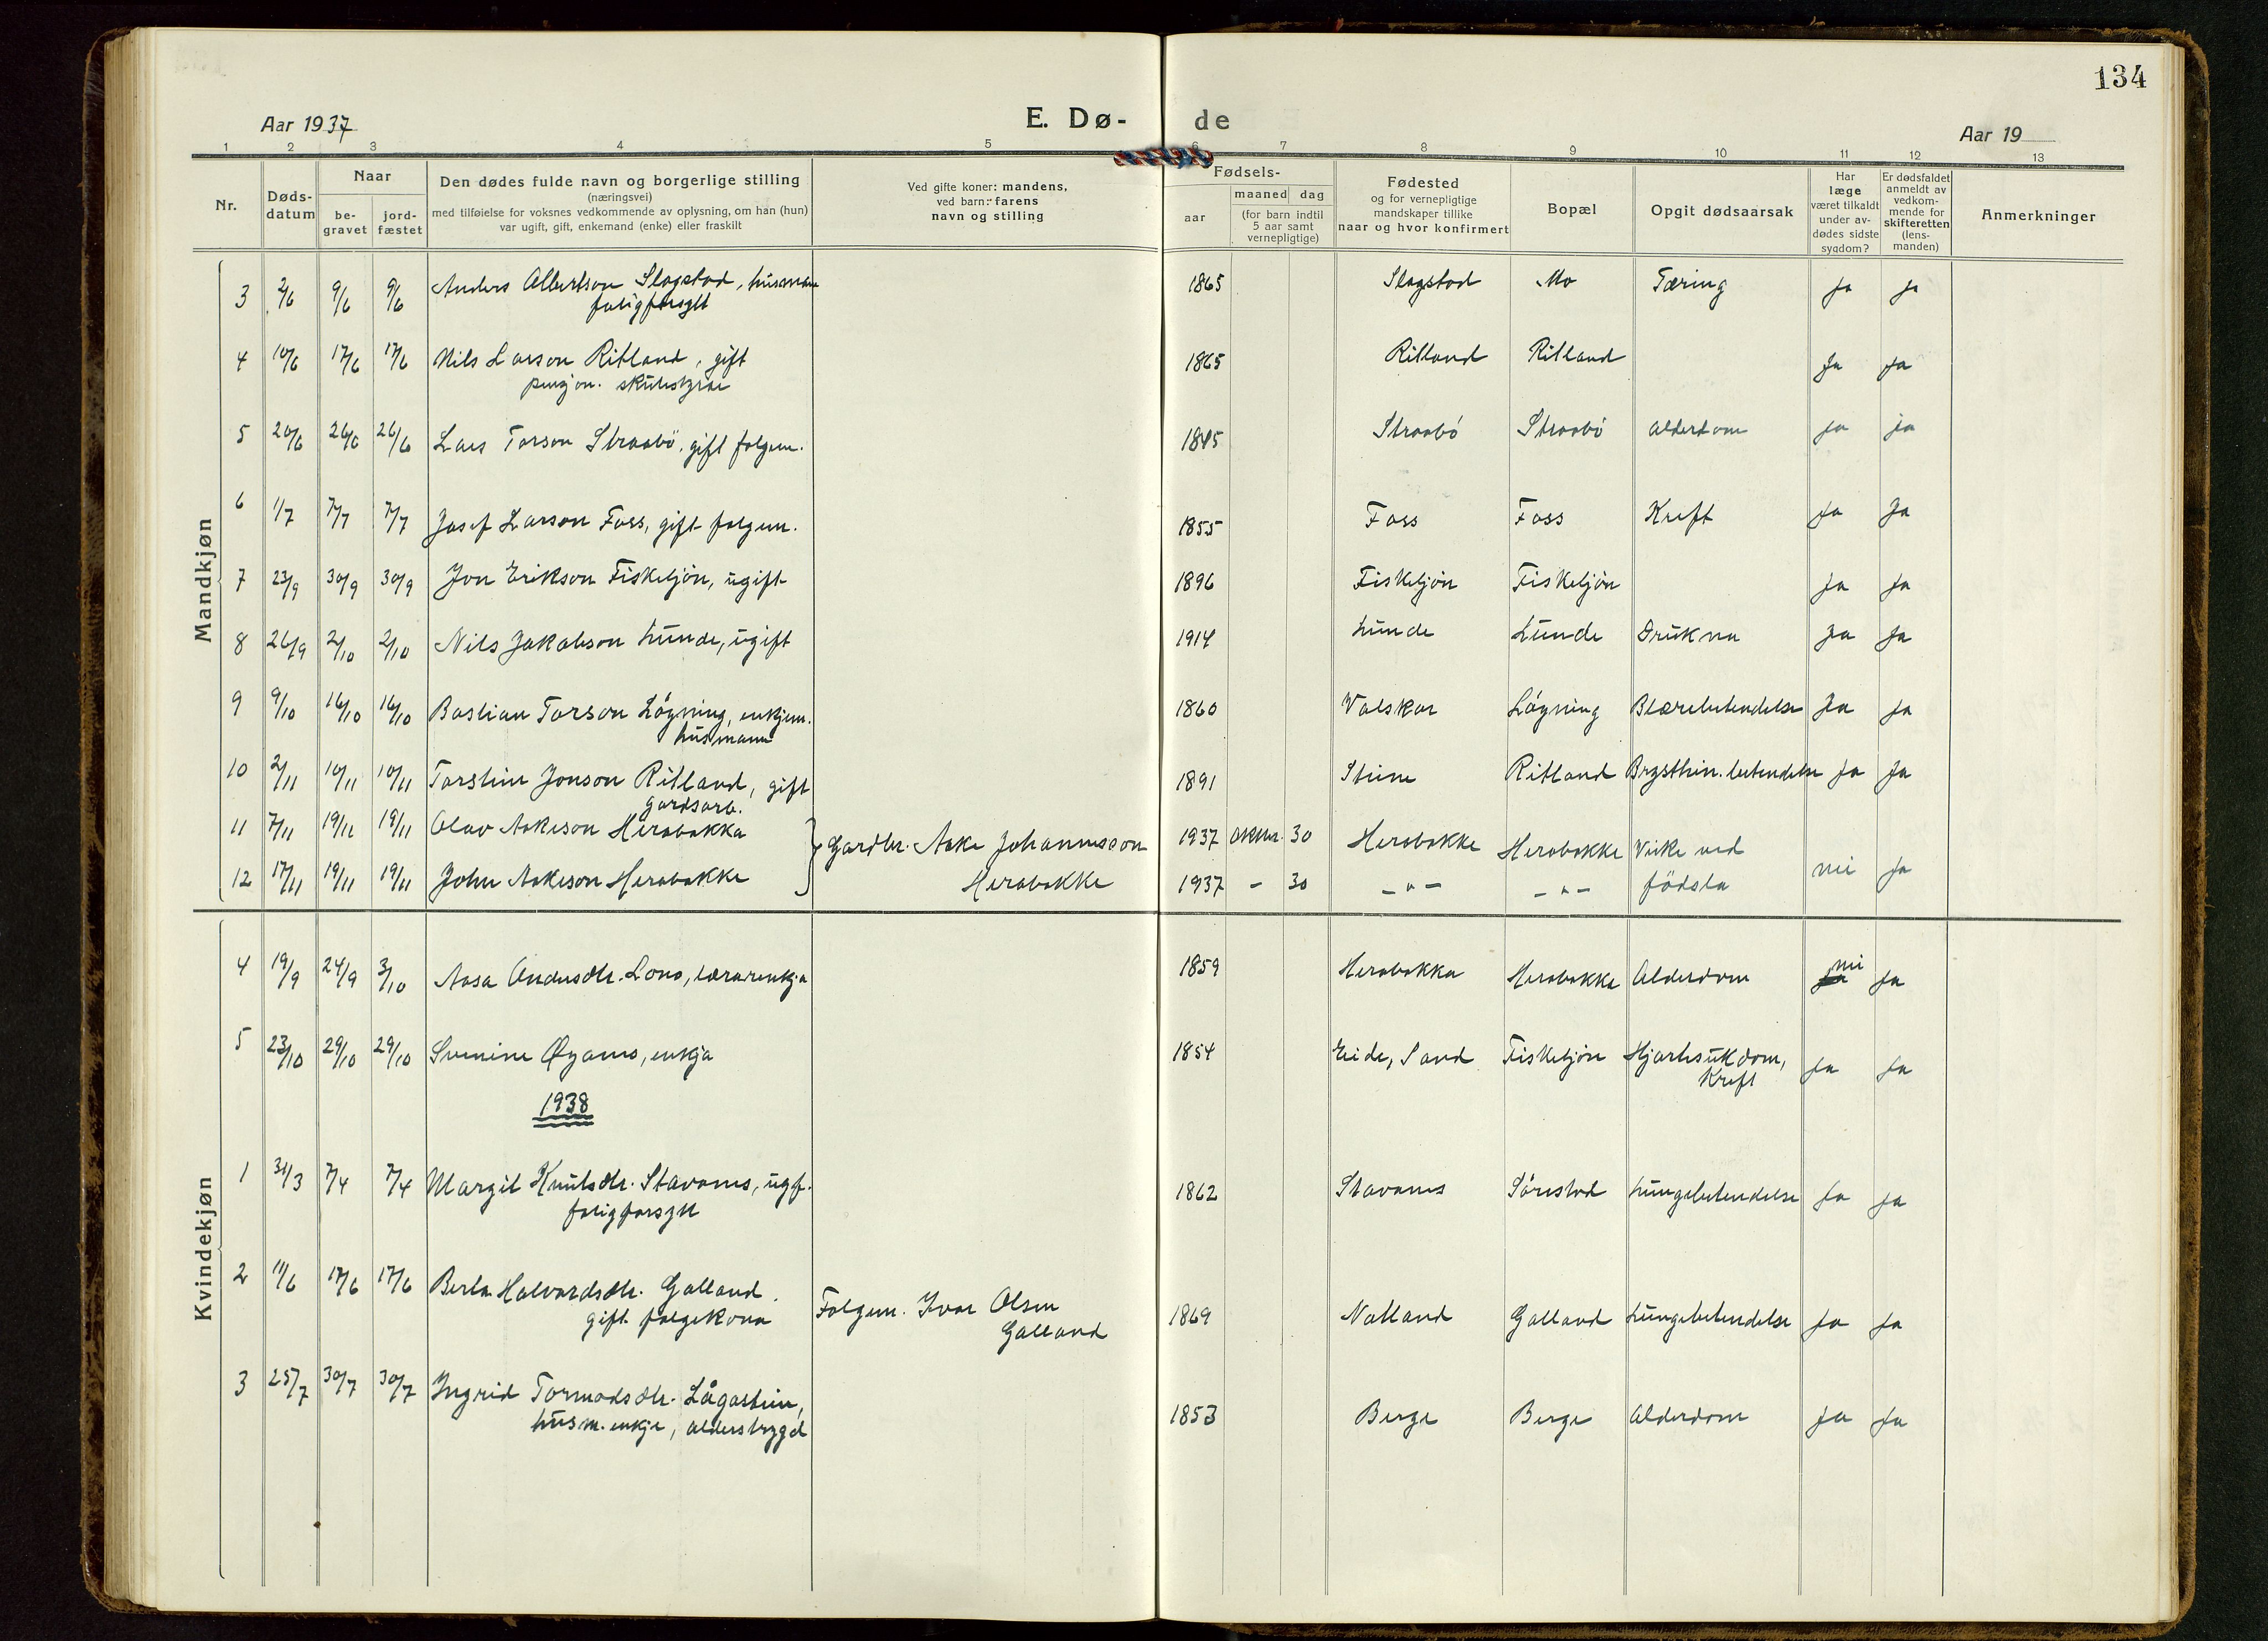 134
Aar 1937
E. Dø- de
Aar 19
1 2 3 4 5 6 7 8 9 10 11 12 13
Nr.
Døds-datum
Naar
be-gravet
jord-fæstet
Den dødes fulde navn og borgerlige stilling
(næringsvei)
med tilføielse for voksnes vedkommende av oplysning, om han (hun)
var ugift, gift, enkemand (enke) eller fraskilt
Ved gifte koner: mandens,
ved barn: farens
navn og stilling
Fødsels-
aar
maaned dag
(for barn indtil
5 aar samt
vernepligtige)
Fødested
og for vernepligtige
mandskaper tillike
naar og hvor konfirmert
Bopæl
Opgit dødsaarsak
Har
læge
været tilkaldt
under av-
dødes sidste
sygdom?
Er dødsfaldet
anmeldt av
vedkom-
mende for
skifteretten
(lens-
manden)
Anmerkninger
Mandkjøn
3 2/6 9/6 9/6 Anders Albertson Slagstad, husmann 1865 Slagstad Mo Tæring Ja Ja
fatigforsytt
4 10/6 17/6 17/6 Nils Larson Ritland, gift 1865 Ritland Ritland Ja Ja
pensjon. skulestyrar
5 20/6 26/6 26/6 Lars Torson Straabö, gift folgem. 1845 Straabö Straabö Alderdom Ja Ja
6 1/7 7/7 7/7 Josef Larson Foss, gift folgem. 1855 Foss Foss Kreft Ja Ja
7 23/9 30/9 30/9 Jon Erikson Fisketjön, ugift 1896 Fisketjön Fisketjön Ja Ja
8 26/9 2/10 2/10 Nils Jakobson Lunde, ugift 1914 Lunde Lunde Drukna Ja Ja
9 9/10 16/10 16/10 Bastian Torson Lögning, enkjem. 1860 Valskar Lögning Blærebetendelse Ja Ja
husmann
10 2/11 10/11 10/11 Torstein Jonson Ritland, gift 1891 Steine Ritland Brysthin. betendelse Ja Ja
gardsarb.
11 7/11 19/11 19/11 Olav Aakeson Herabakka Gardbr. Aake Johannesson 1937 Oktbr. 30 Herabakke Herabakke Veike ved
12 17/11 19/11 19/11 John Aakeson Herabakke Herabakke 1937 - 30 - " - - " - födsla nei Ja
Kvindekjøn
4 19/9 24/9 3/10 Aasa Andersdtr. Lono, lærarenkja 1859 Herabakka Herabakke Alderdom nei Ja
5 23/10 29/10 29/10 Svenine Øyanes, enkja 1854 Eide, Sand Fisketjön Hjartesukdom, Ja Ja
Kreft
1938
1 31/3 7/4 7/4 Margit Knutsdtr. Stavanes, ugf. 1862 Stavanes Sörestad Lungebetendelse Ja Ja
fatigforsytt
2 11/6 17/6 17/6 Berta Halvardsdtr. Galland.
gift folgekona Folgem. Ivar Olsen 1869 Natland Galland Lungebetendelse Ja Ja
Galland
3 25/7 30/7 30/7 Ingrid Tormodsdtr. Lågastein, 1853 Berge Berge Alderdom Ja Ja
husm. enkje, alderstrygd